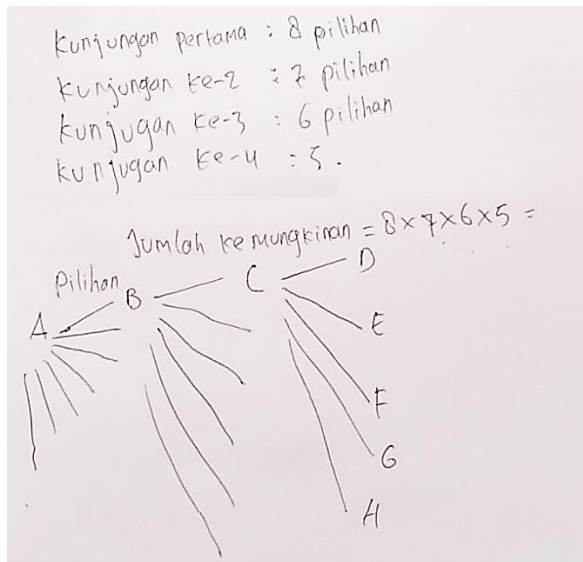 Kunjungan pertama : 8 pilihan
Kunjungan ke-2 : 7 pilihan
Kunjugan ke-3 : 6 pilihan
kunjugan ke-4 : 5.
Jumlah kemungkinan = 8×7×6×5 =
Pilihan
A
B
C
D
E
F
G
H